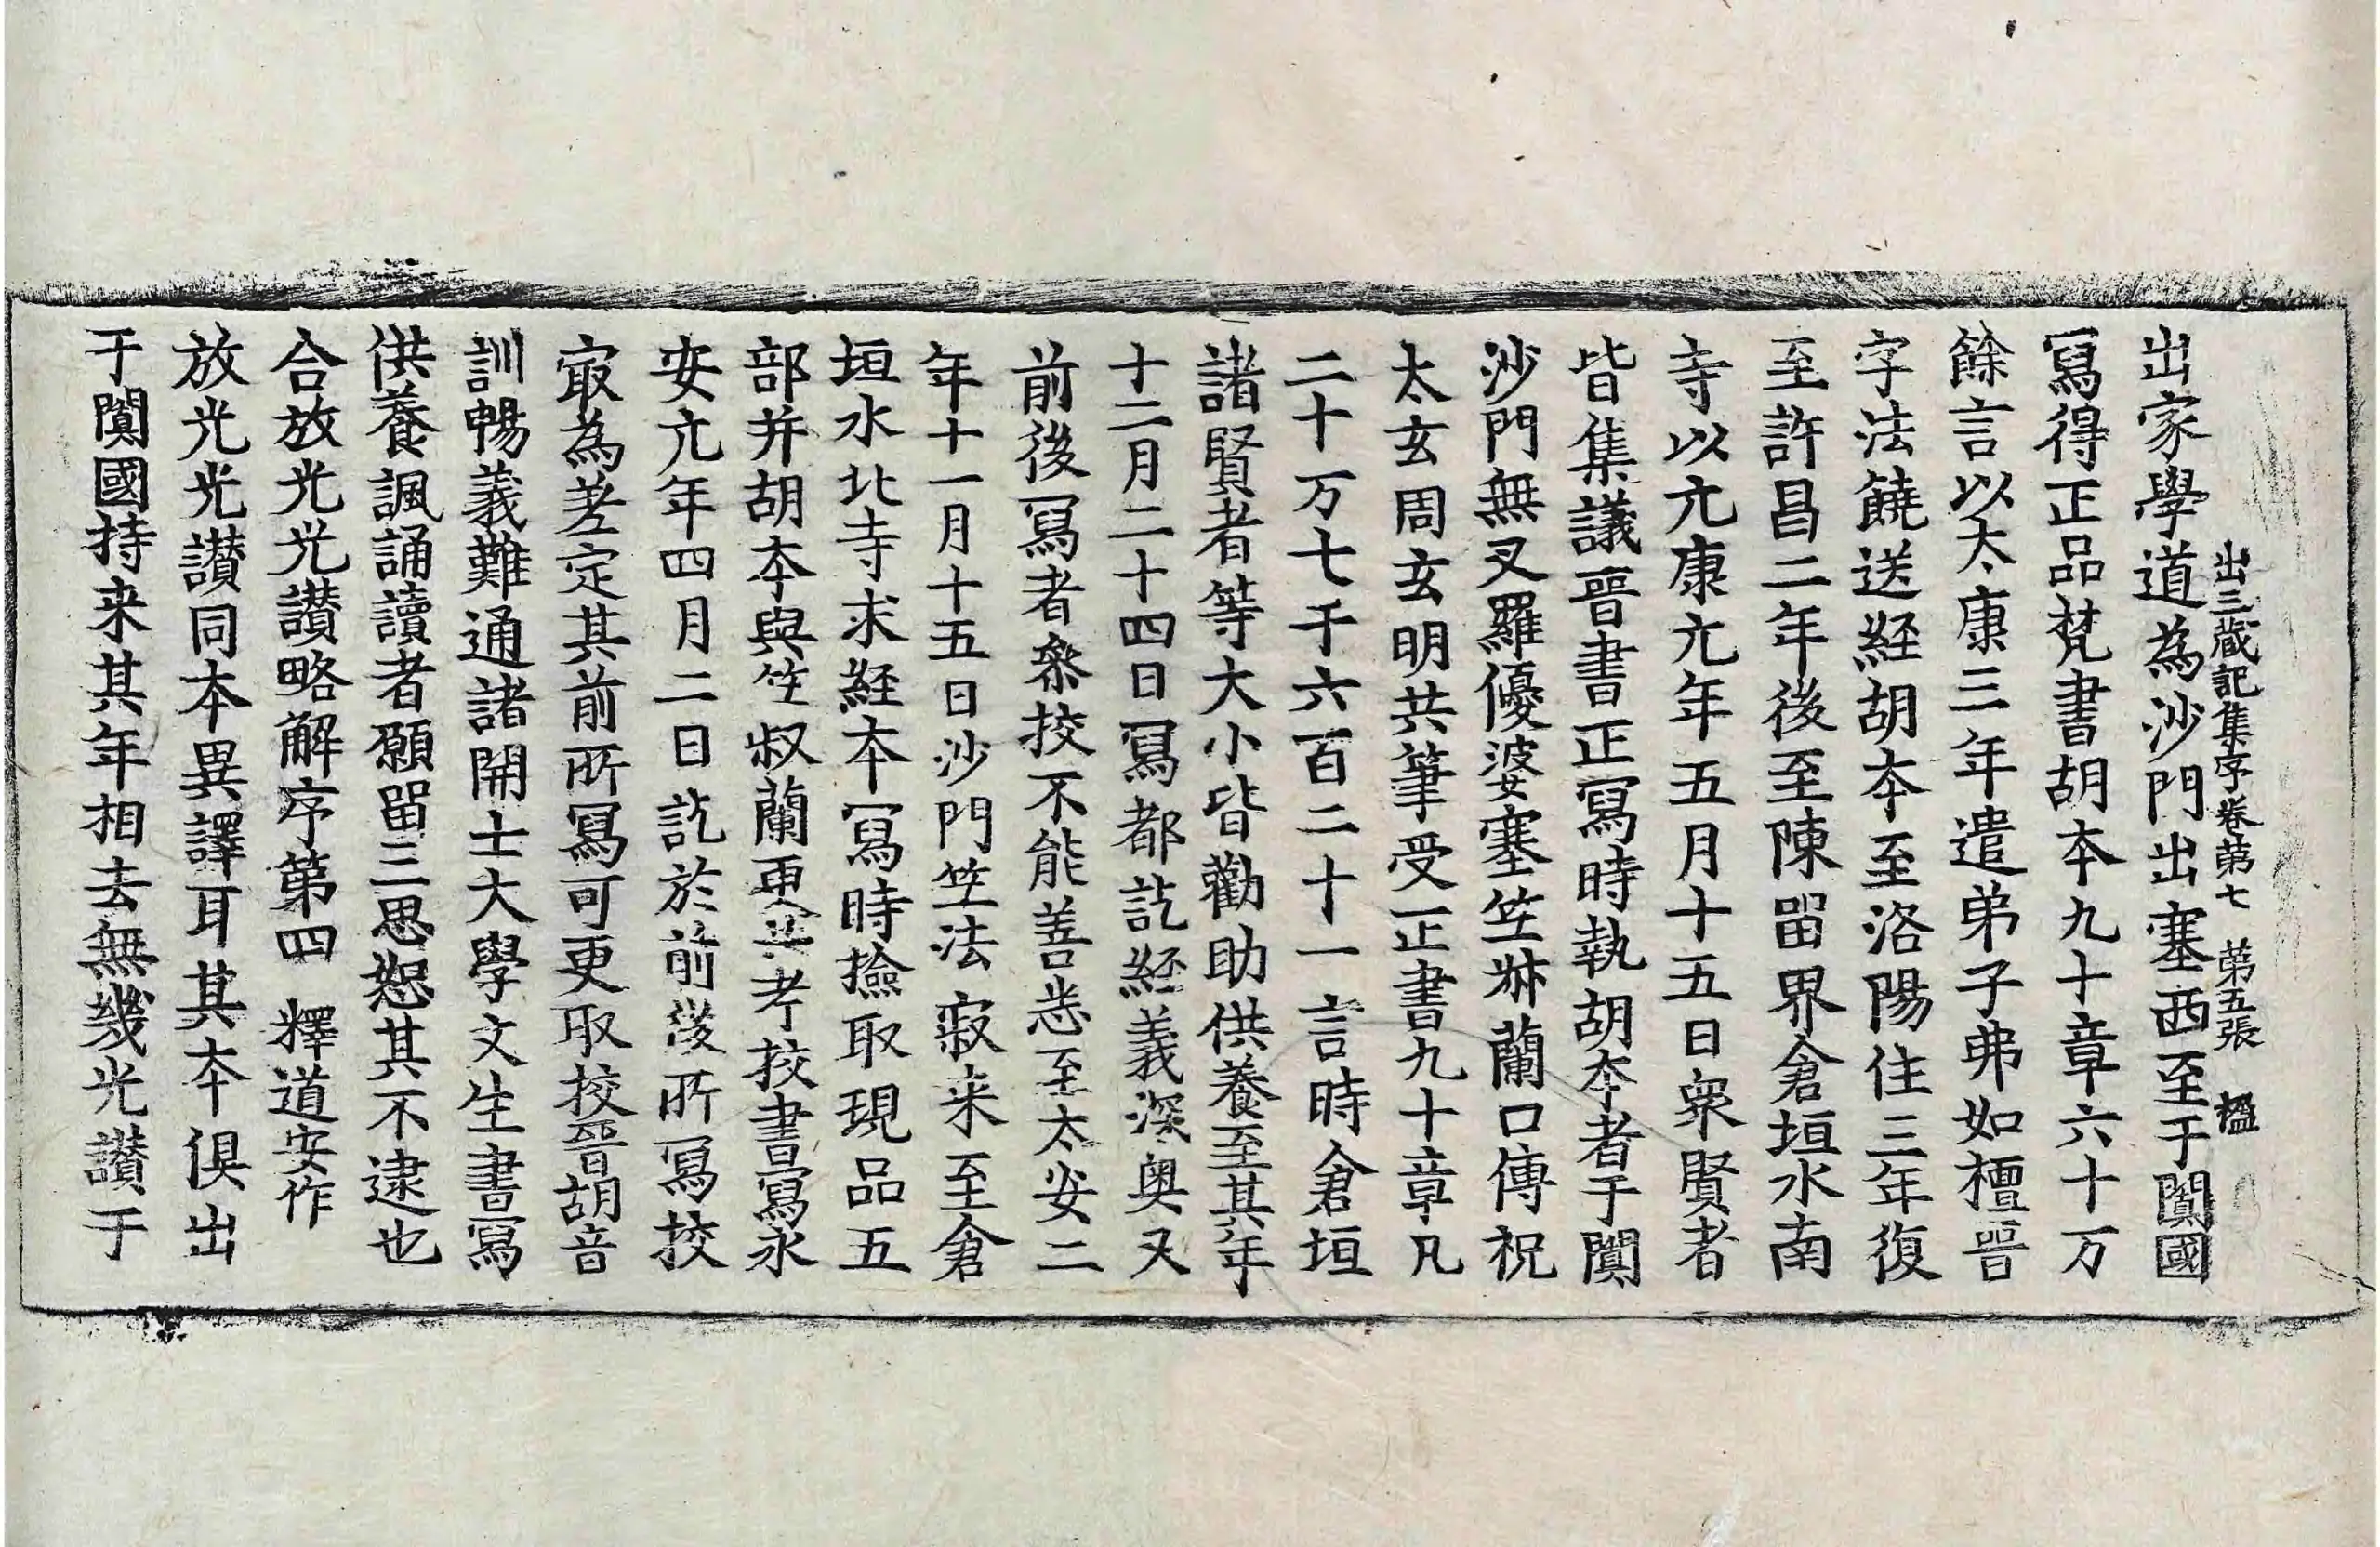 出三藏記集序卷第七　第五張　楹
出家學道為沙門出塞西至于闐國
寫得正品梵書胡本九十章六十万
餘言以太康三年遣弟子弗如檀晉
字法饒送経胡本至洛陽住三年復
至許昌二年後至陳留界倉垣水南
寺以元康元年五月十五日衆賢者
皆集議晉書正寫時執胡本者于闐
沙門無叉羅優婆塞竺叔蘭口傳祝
太玄周玄明共筆受正書九十章凡
二十万七千六百二十一言時倉垣
諸賢者等大小皆勸助供養至其年
十二月二十四日寫都訖経義深奥又
前後寫者叅挍不能善悉至太安二
年十一月十五日沙門竺法寂来至倉
垣水北寺求経本寫時撿取現品五
部并胡本與竺叔蘭更共考挍書寫永
安元年四月二日訖於前後所寫挍
冣為差定其前所寫可更取挍晉胡音
訓暢義難通諸開士大學文生書寫
供養諷誦讀者願留三思恕其不逮也
合放光光讃略解序第四　釋道安作
放光光讃同本異譯耳其本俱出
于闐國持来其年相去無幾光讃于